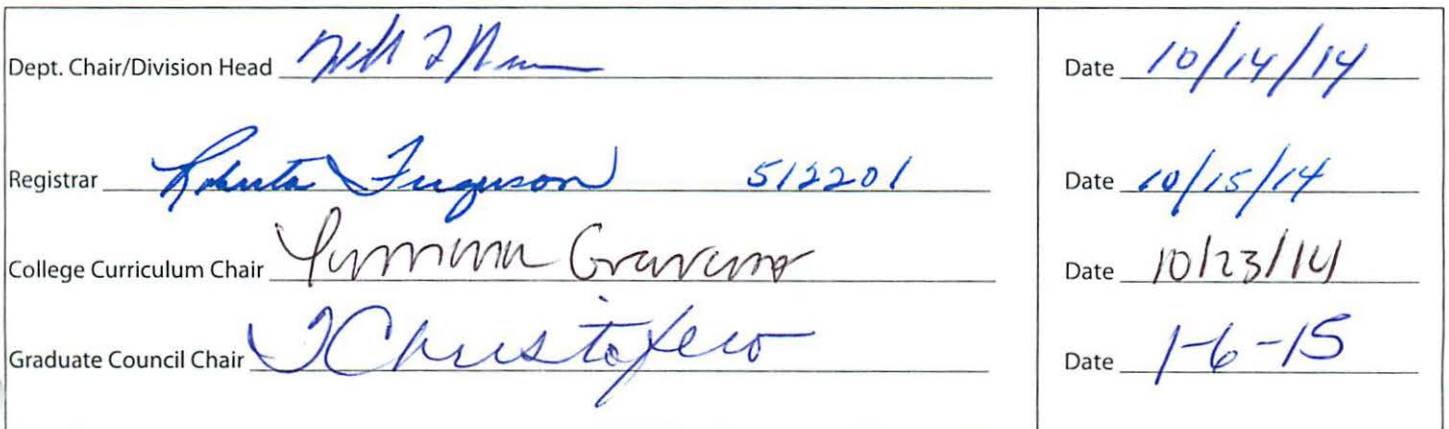 Dept. Chair/Division Head Date 10/14/14
Registrar Roberta Ferguson 512201 Date 10/15/14
College Curriculum Chair Date 10/23/14
Graduate Council Chair TChristofero Date 1-6-15